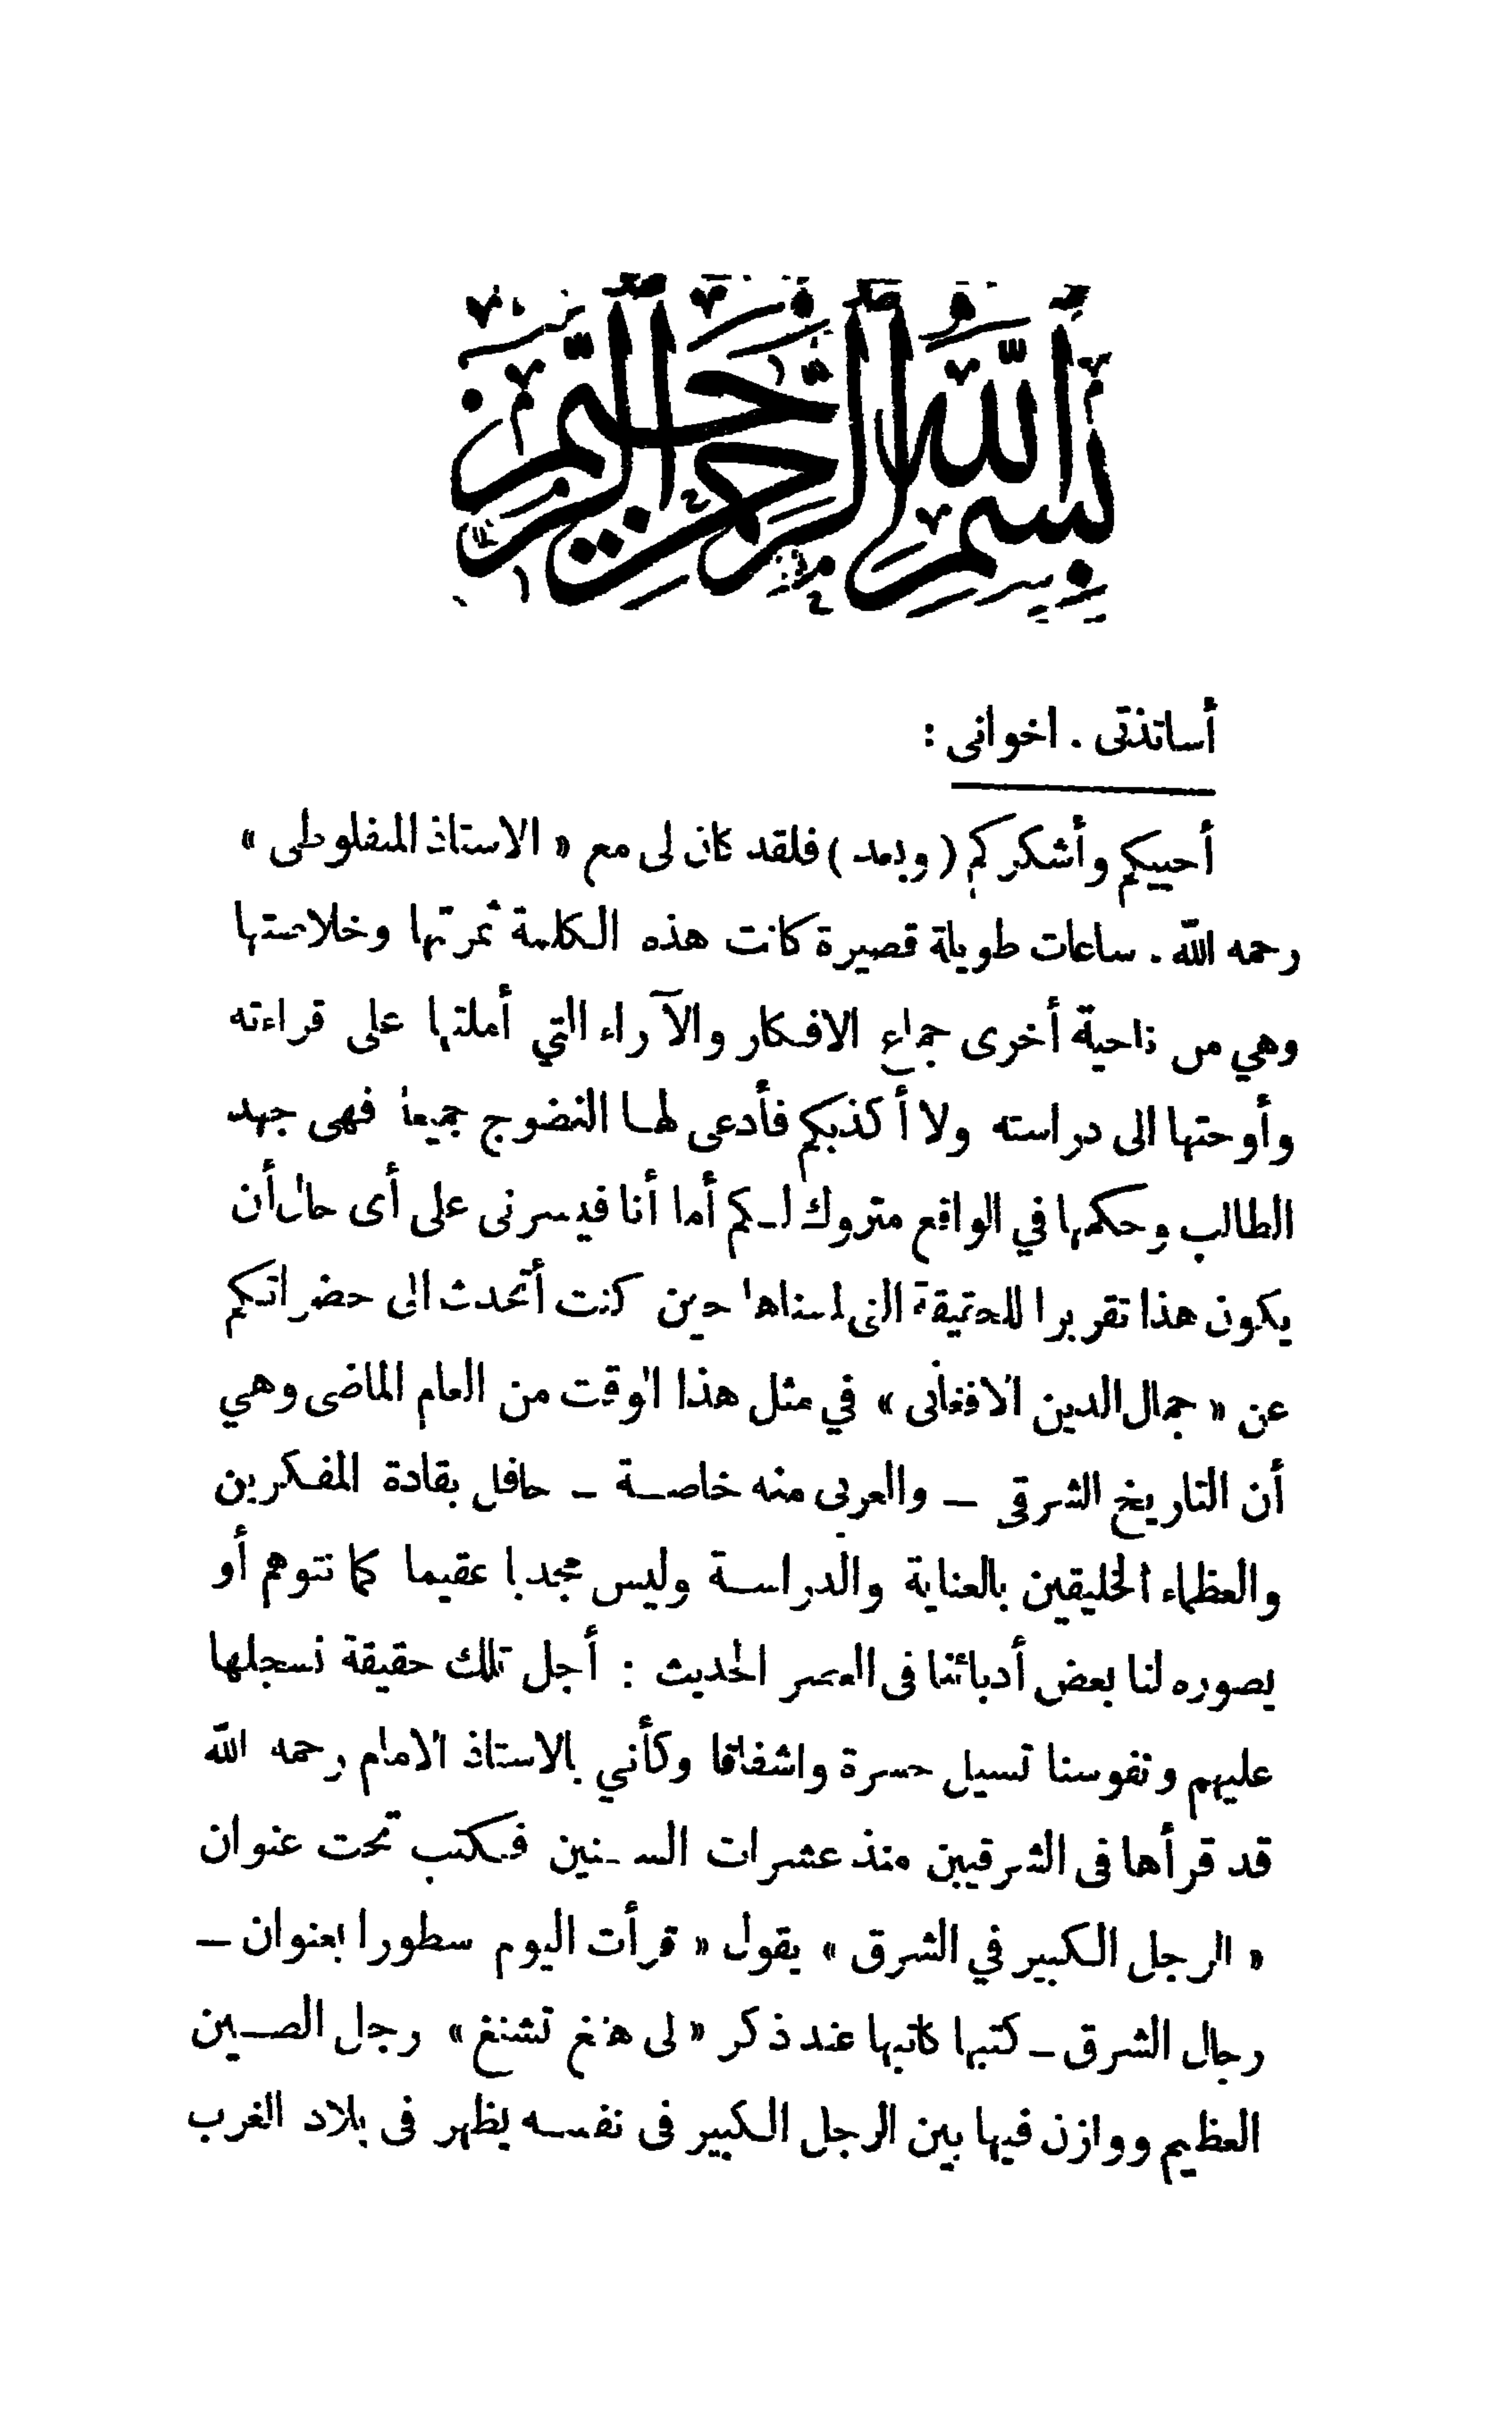 بسم الله الرحمن الرحيم
أساتذتى . اخوانى :
أحييكم وأشكركم ( وبعد ) فلقد كان لى مع « الاستاذ المنفلوطى »
رحمه الله . ساعات طويلة قصيرة كانت هذه الكلمة ثمرتها وخلاصتها
وهي من ناحية أخرى جماع الافكار والآراء التي أملتها على قراءته
وأوحتها الى دراسته ولا أكذبكم فأدعى لها النضوج جميعا فهى جهد
الطالب وحكمها في الواقع متروك لكم أما أنا فيسرنى على أى حال أن
يكون هذا تقريرا للحقيقة التى لمسناها حين كنت أتحدث الى حضراتكم
عن « جمال الدين الافغانى » في مثل هذا الوقت من العام الماضى وهي
أن التاريخ الشرقى – والعربى منه خاصة – حافل بقادة المفكرين
والعظماء الخليقين بالعناية والدراسة وليس مجدبا عقيما كما نتوهم أو
يصوره لنا بعض أدبائنا فى العصر الحديث : أجل تلك حقيقة نسجلها
عليهم ونفوسنا تسيل حسرة واشفاقا وكأني بالاستاذ الامام رحمه الله
قد قرأها فى الشرقيين منذ عشرات السنين فكتب تحت عنوان
« الرجل الكبير في الشرق » يقول « قرأت اليوم سطورا بعنوان –
رجال الشرق – كتبها كاتبها عند ذكر « لى هنغ تشنغ » رجل الصين
العظيم ووازن فيها بين الرجل الكبير فى نفسه يظهر فى بلاد الغرب